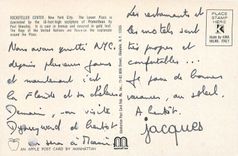 ROCKEFELLER CENTER New York City. The Lower Plaza is
dominated by the 18-foot-high sculpture of Prometheus by
Paul Manship.
Nous avons quitté NYC.
depuis plusieurs jours
et maintenant c'est
la Floride et sa chaleur
Demain, on visite
Disneyword et bientôt
on sera à Miami
Les restaurants et
les motels sont
très propres et
confortables...
Je passe de bonnes
vacances, au soleil.
A bientôt.
Jacques
PLACE
STAMP
HERE
A BIG APPLE POST CARD BY MANHATTAN